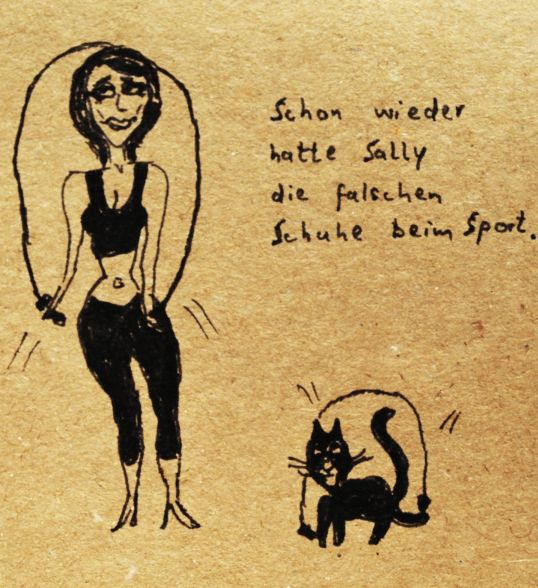 Schon wieder
hatte Sally
die falschen
Schuhe beim Sport.